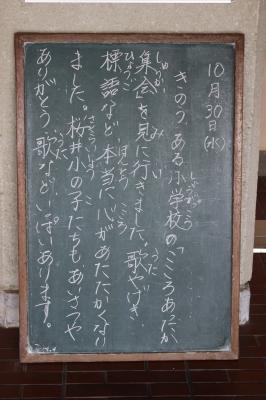 10月30日(水)
きのう、ある小学校の「こころあたたか
集会」を見に行きました。歌やげき、
標語など、本当に心があたたかくなり
ました。桜井小の子たちもあいさつや
ありがとう、歌などいっぱいあります。